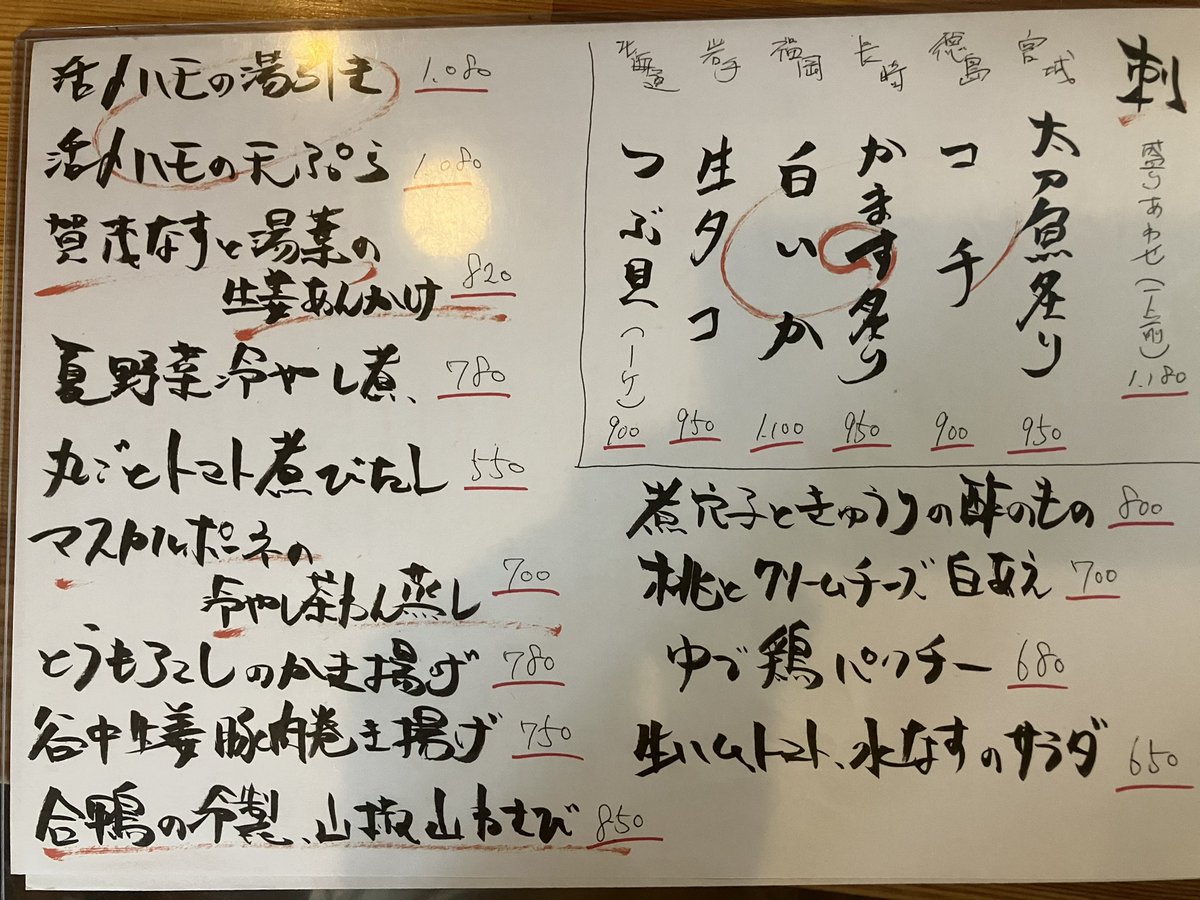 刺
盛りあわせ(一人前)
1.180
宮城
太刀魚炙り
950
徳島
コチ
900
長崎
かます炙り
950
福岡
白いか
1.100
岩手
生タコ
950
北海道
つぶ貝(一ケ)
900
煮穴子ときゅうりの酢のもの 800
桃とクリームチーズ白あえ 700
ゆで鶏パクチー 680
生ハム、トマト、水なすのサラダ 650
活〆ハモの湯引き 1.080
活〆ハモの天ぷら 1.080
賀茂なすと湯葉の
生姜あんかけ 820
夏野菜冷やし煮、 780
丸ごとトマト煮びたし 550
マスカルポーネの
冷やし茶わん蒸し 700
とうもろこしのかき揚げ 780
谷中生姜豚肉巻き揚げ 750
合鴨の冷製、山椒山わさび 850